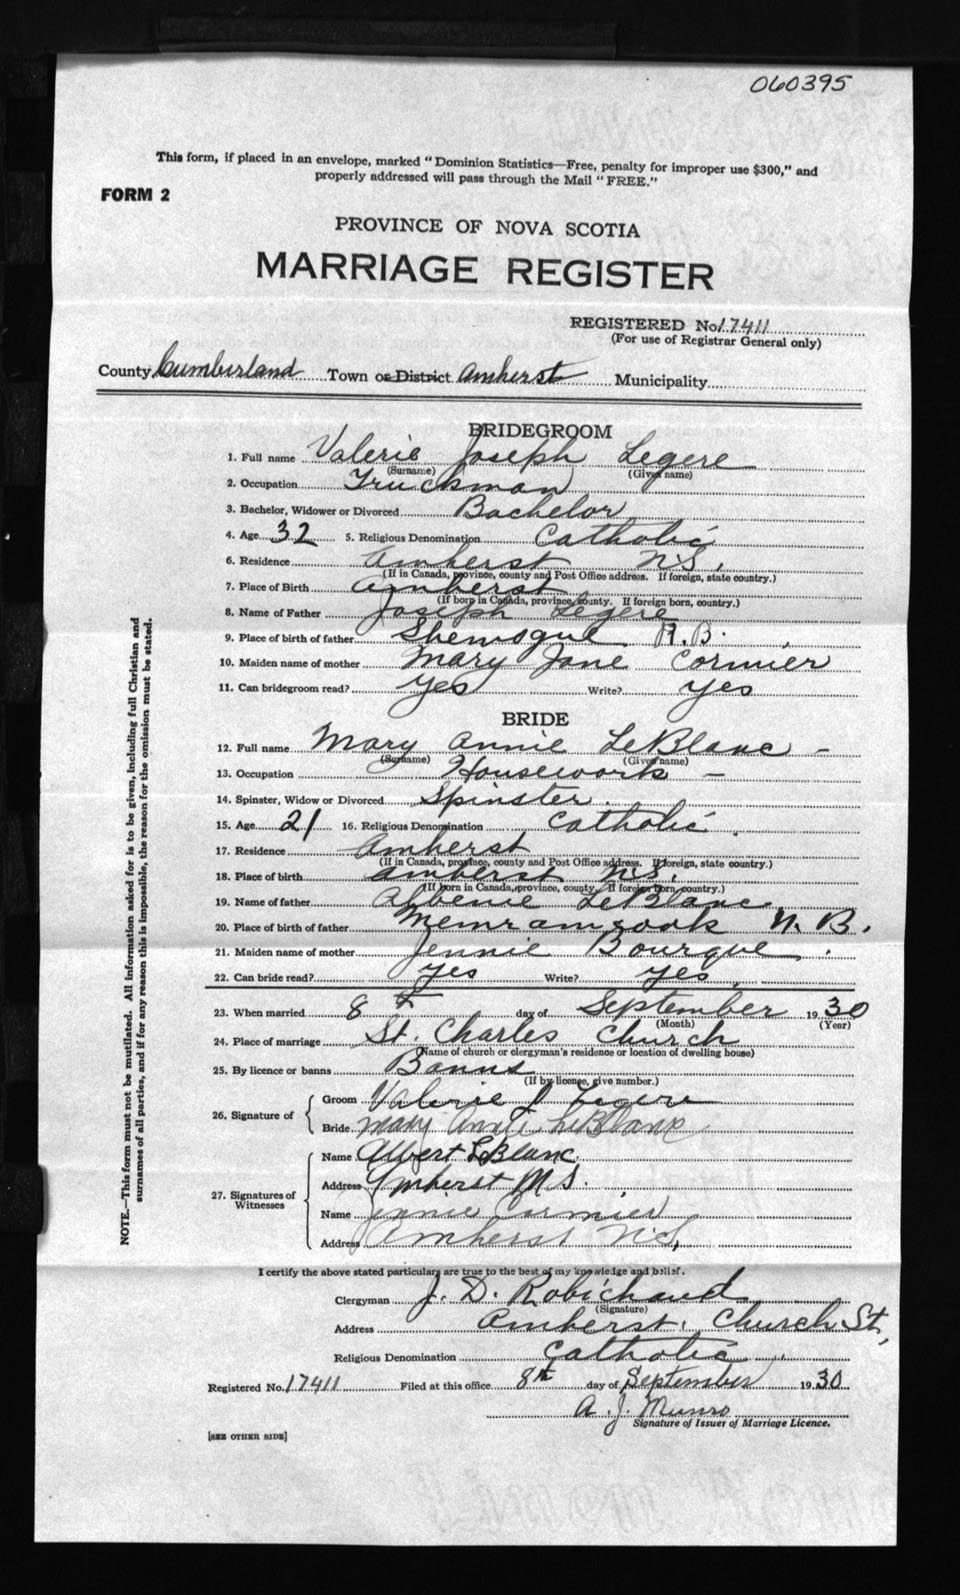 060395
This form, if placed in an envelope, marked "Dominion Statistics—Free, penalty for improper use $300," and
properly addressed will pass through the Mail "FREE."
FORM 2
PROVINCE OF NOVA SCOTIA
MARRIAGE REGISTER
REGISTERED No. 17411
(For use of Registrar General only)
County Cumberland Town or District Amherst Municipality
BRIDEGROOM
1. Full name Valerie Joseph Legere
(Surname) (Given name)
2. Occupation Truckman
3. Bachelor, Widower or Divorced Bachelor
4. Age 32 5. Religious Denomination Catholic
6. Residence Amherst N.S.
(If in Canada, province, county and Post Office address. If foreign, state country.)
7. Place of Birth Amherst
(If born in Canada, province, county. If foreign born, country.)
8. Name of Father Joseph Legere
9. Place of birth of father Shemogue N.B.
10. Maiden name of mother Mary Jane Cormier
11. Can bridegroom read? Yes Write? yes
BRIDE
12. Full name Mary Annie LeBlanc -
(Surname) (Given name)
13. Occupation Housework -
14. Spinster, Widow or Divorced Spinster.
15. Age 21 16. Religious Denomination Catholic.
17. Residence Amherst
(If in Canada, province, county and Post Office address. If foreign, state country.)
18. Place of birth Amherst N.S.
(If born in Canada, province, county. If foreign born, country.)
19. Name of father Albenie LeBlanc
20. Place of birth of father Memramcook N.B.
21. Maiden name of mother Jennie Bourque.
22. Can bride read? yes Write? yes
23. When married 8th day of September 1930
(Month) (Year)
24. Place of marriage St. Charles Church
(Name of church or clergyman's residence or location of dwelling house)
25. By licence or banns Banns
(If by licence, give number.)
26. Signature of
Groom Valerie J Legere
Bride Mary Annie LeBlanc
27. Signatures of Witnesses
Name Albert LeBlanc
Address Amherst N.S.
Name Jennie Cormier
Address Amherst N.S.
I certify the above stated particulars are true to the best of my knowledge and belief.
Clergyman J. D. Robichaud
(Signature)
Address Amherst. Church St,
Religious Denomination Catholic
Registered No. 17411 Filed at this office 8th day of September 1930
A. J. Munro
Signature of Issuer of Marriage Licence.
[SEE OTHER SIDE]
NOTE.—This form must not be mutilated. All information asked for is to be given, including full Christian and
surnames of all parties, and if for any reason this is impossible, the reason for the omission must be stated.